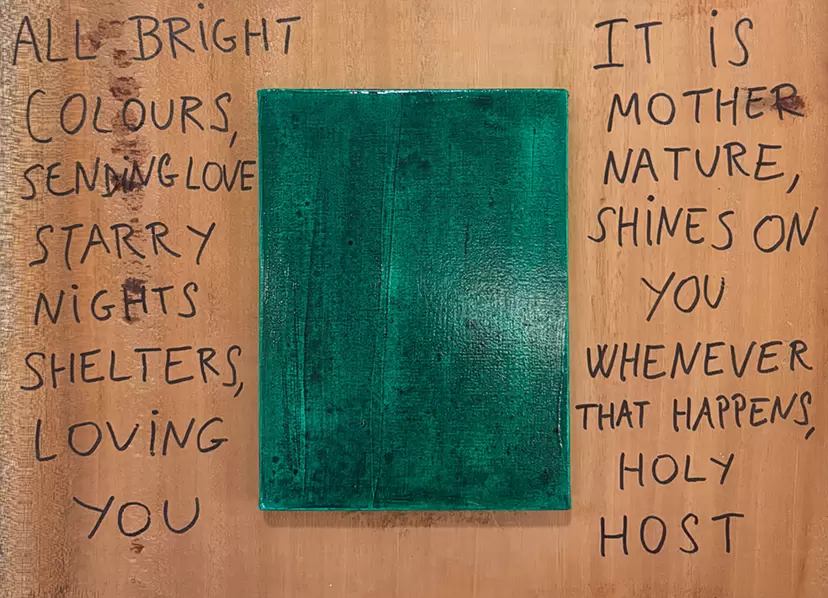 ALL BRiGHT
COLOURS,
SENDiNG LOVE
STARRY
NiGHTS
SHELTERS,
LOViNG
YOU
IT iS
MOTHER
NATURE,
SHiNES ON
YOU
WHENEVER
THAT HAPPENS,
HOLY
HOST